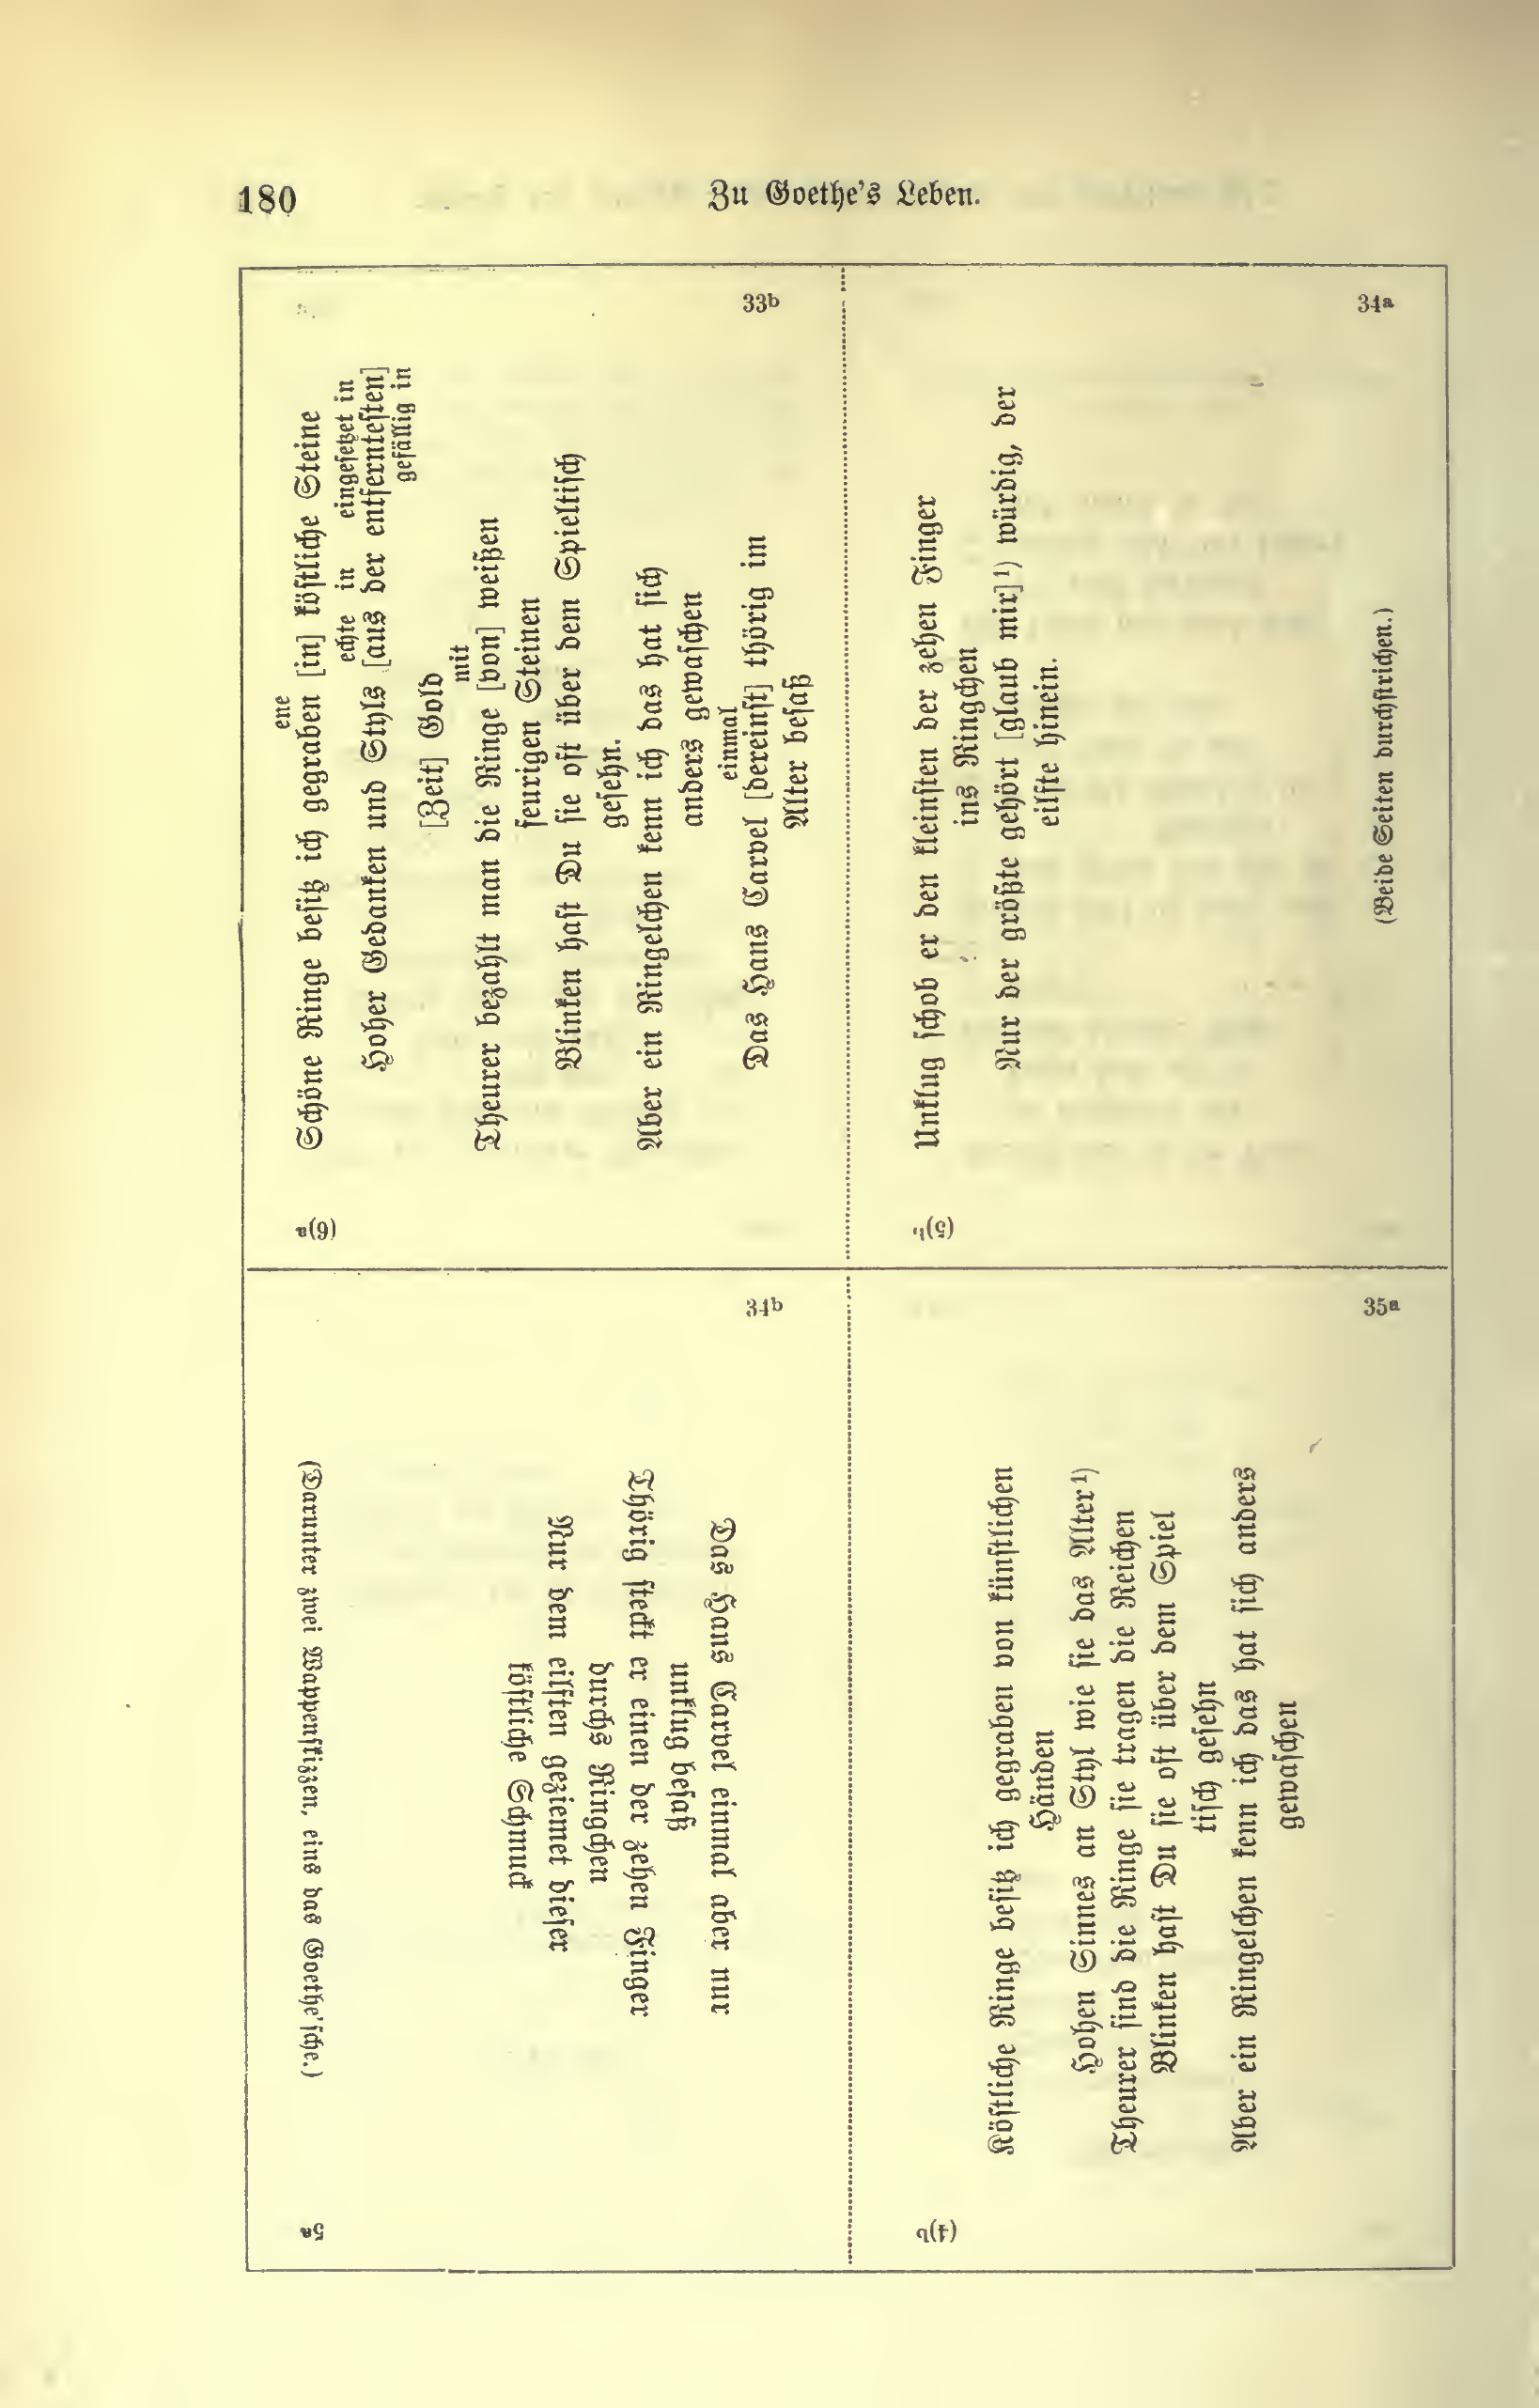 180
Zu Goethe's Leben.
33b
ene
Schöne Ringe besitz ich gegraben [in] köstliche Steine
echte in eingesetzet in
Hoher Gedanken und Styls [aus der entferntesten]
gefällig in
[Zeit] Gold
mit
Theurer bezahlt man die Ringe [von] weißen
feurigen Steinen
Blinken hast Du sie oft über dem Spieltisch
gesehn.
Aber ein Ringelchen kenn ich das hat sich
anders gewaschen
einmal
Das Hans Carvel [dereinst] thörig im
Alter besaß
(6)a
34a
Unklug schob er den kleinsten der zehen Finger
ins Ringchen
Nur der größte gehört [glaub mir]¹) würdig, der
eilfte hinein.
(Beide Seiten durchstrichen.)
(5)b
34b
Das Hans Carvel einmal aber nur
unklug besaß
Thörig steckt er einen der zehen Finger
durchs Ringchen
Nur dem eilften geziemet dieser
köstliche Schmuck
(Darunter zwei Wappenskizzen, eins das Goethe'sche.)
5a
35a
Köstliche Ringe besitz ich gegraben von künstlichen
Händen
Hohen Sinnes an Styl wie sie das Alter¹)
Theurer sind die Ringe sie tragen die Reichen
Blinken hast Du sie oft über dem Spiel
tisch gesehn
Aber ein Ringelchen kenn ich das hat sich anders
gewaschen
(4)b